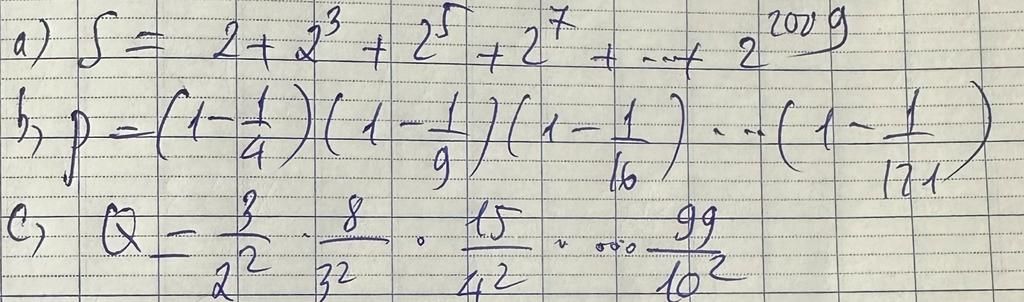 a) S = 2 + 2^3 + 2^5 + 2^7 + ... + 2^2009
b, p = (1 - 1/4)(1 - 1/9)(1 - 1/16) ... (1 - 1/121)
c, Q = 3/2^2 · 8/3^2 · 15/4^2 · ... 99/10^2